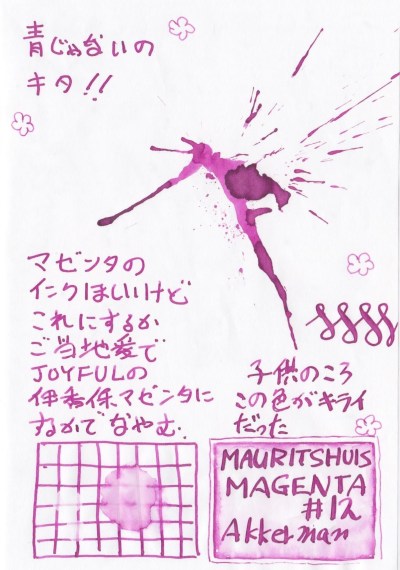 青じゃないの
キタ!!
マゼンタの
インクほしいけど
これにするか
ご当地愛で
JOYFULの
伊香保マゼンタに
するかでなやむ.
子供のころ
この色がキライ
だった
MAURITSHUIS
MAGENTA
#12
Akkerman